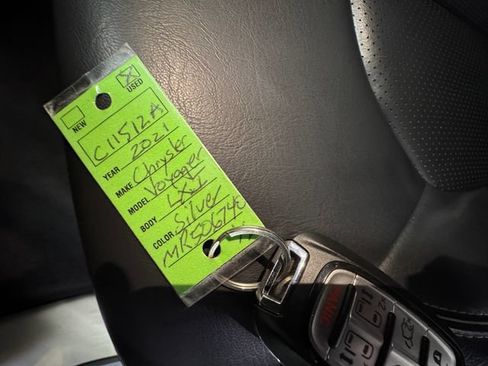 NEW USED
C11512A
YEAR 2021
MAKE Chrysler
MODEL Voyager
BODY LXI
COLOR Silver